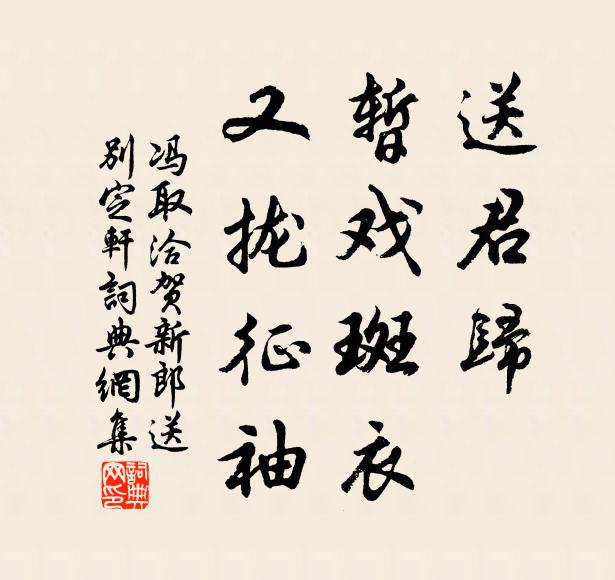 送君歸
暫戏斑衣
又拢征袖
冯取洽贺新郎送
别定軒詞典網集
詞典
网印